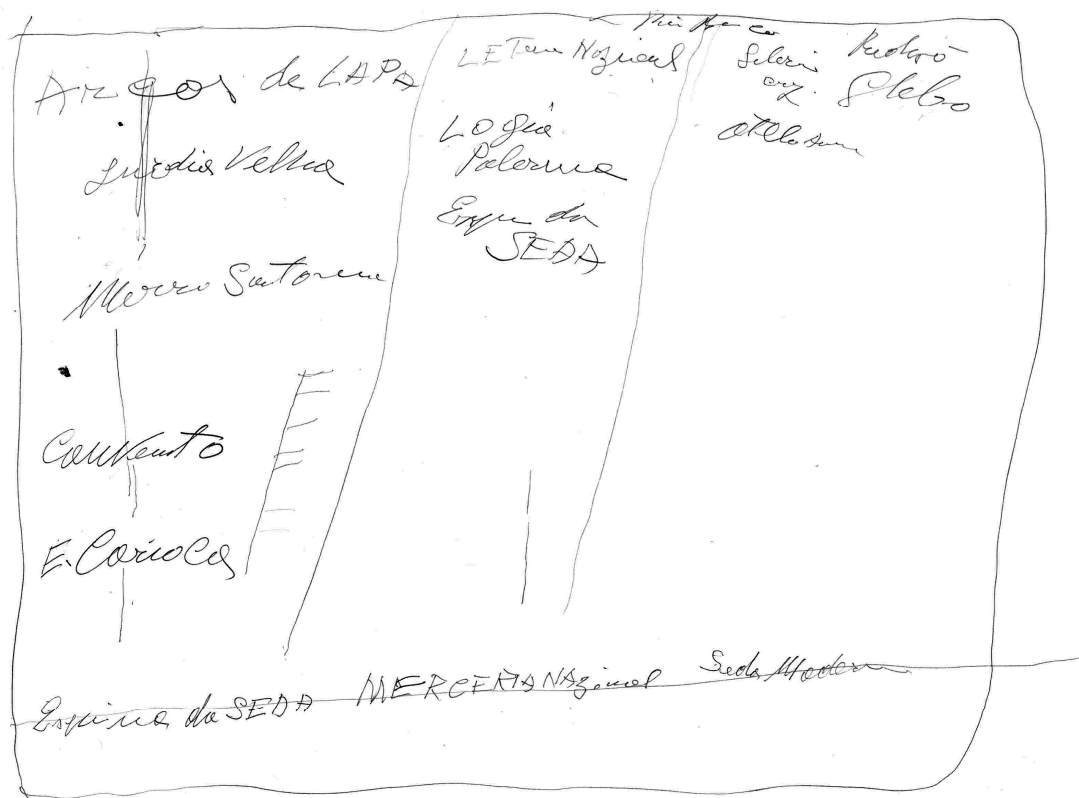 Arcos de LAPA
India Velha
Morro Santo
Convento
E. Carioca
LE Nazional
Logia
Palerma
Esqu da
SEDA
Globo
Esquina da SEDA MERCERIA NAzional Seda Modern